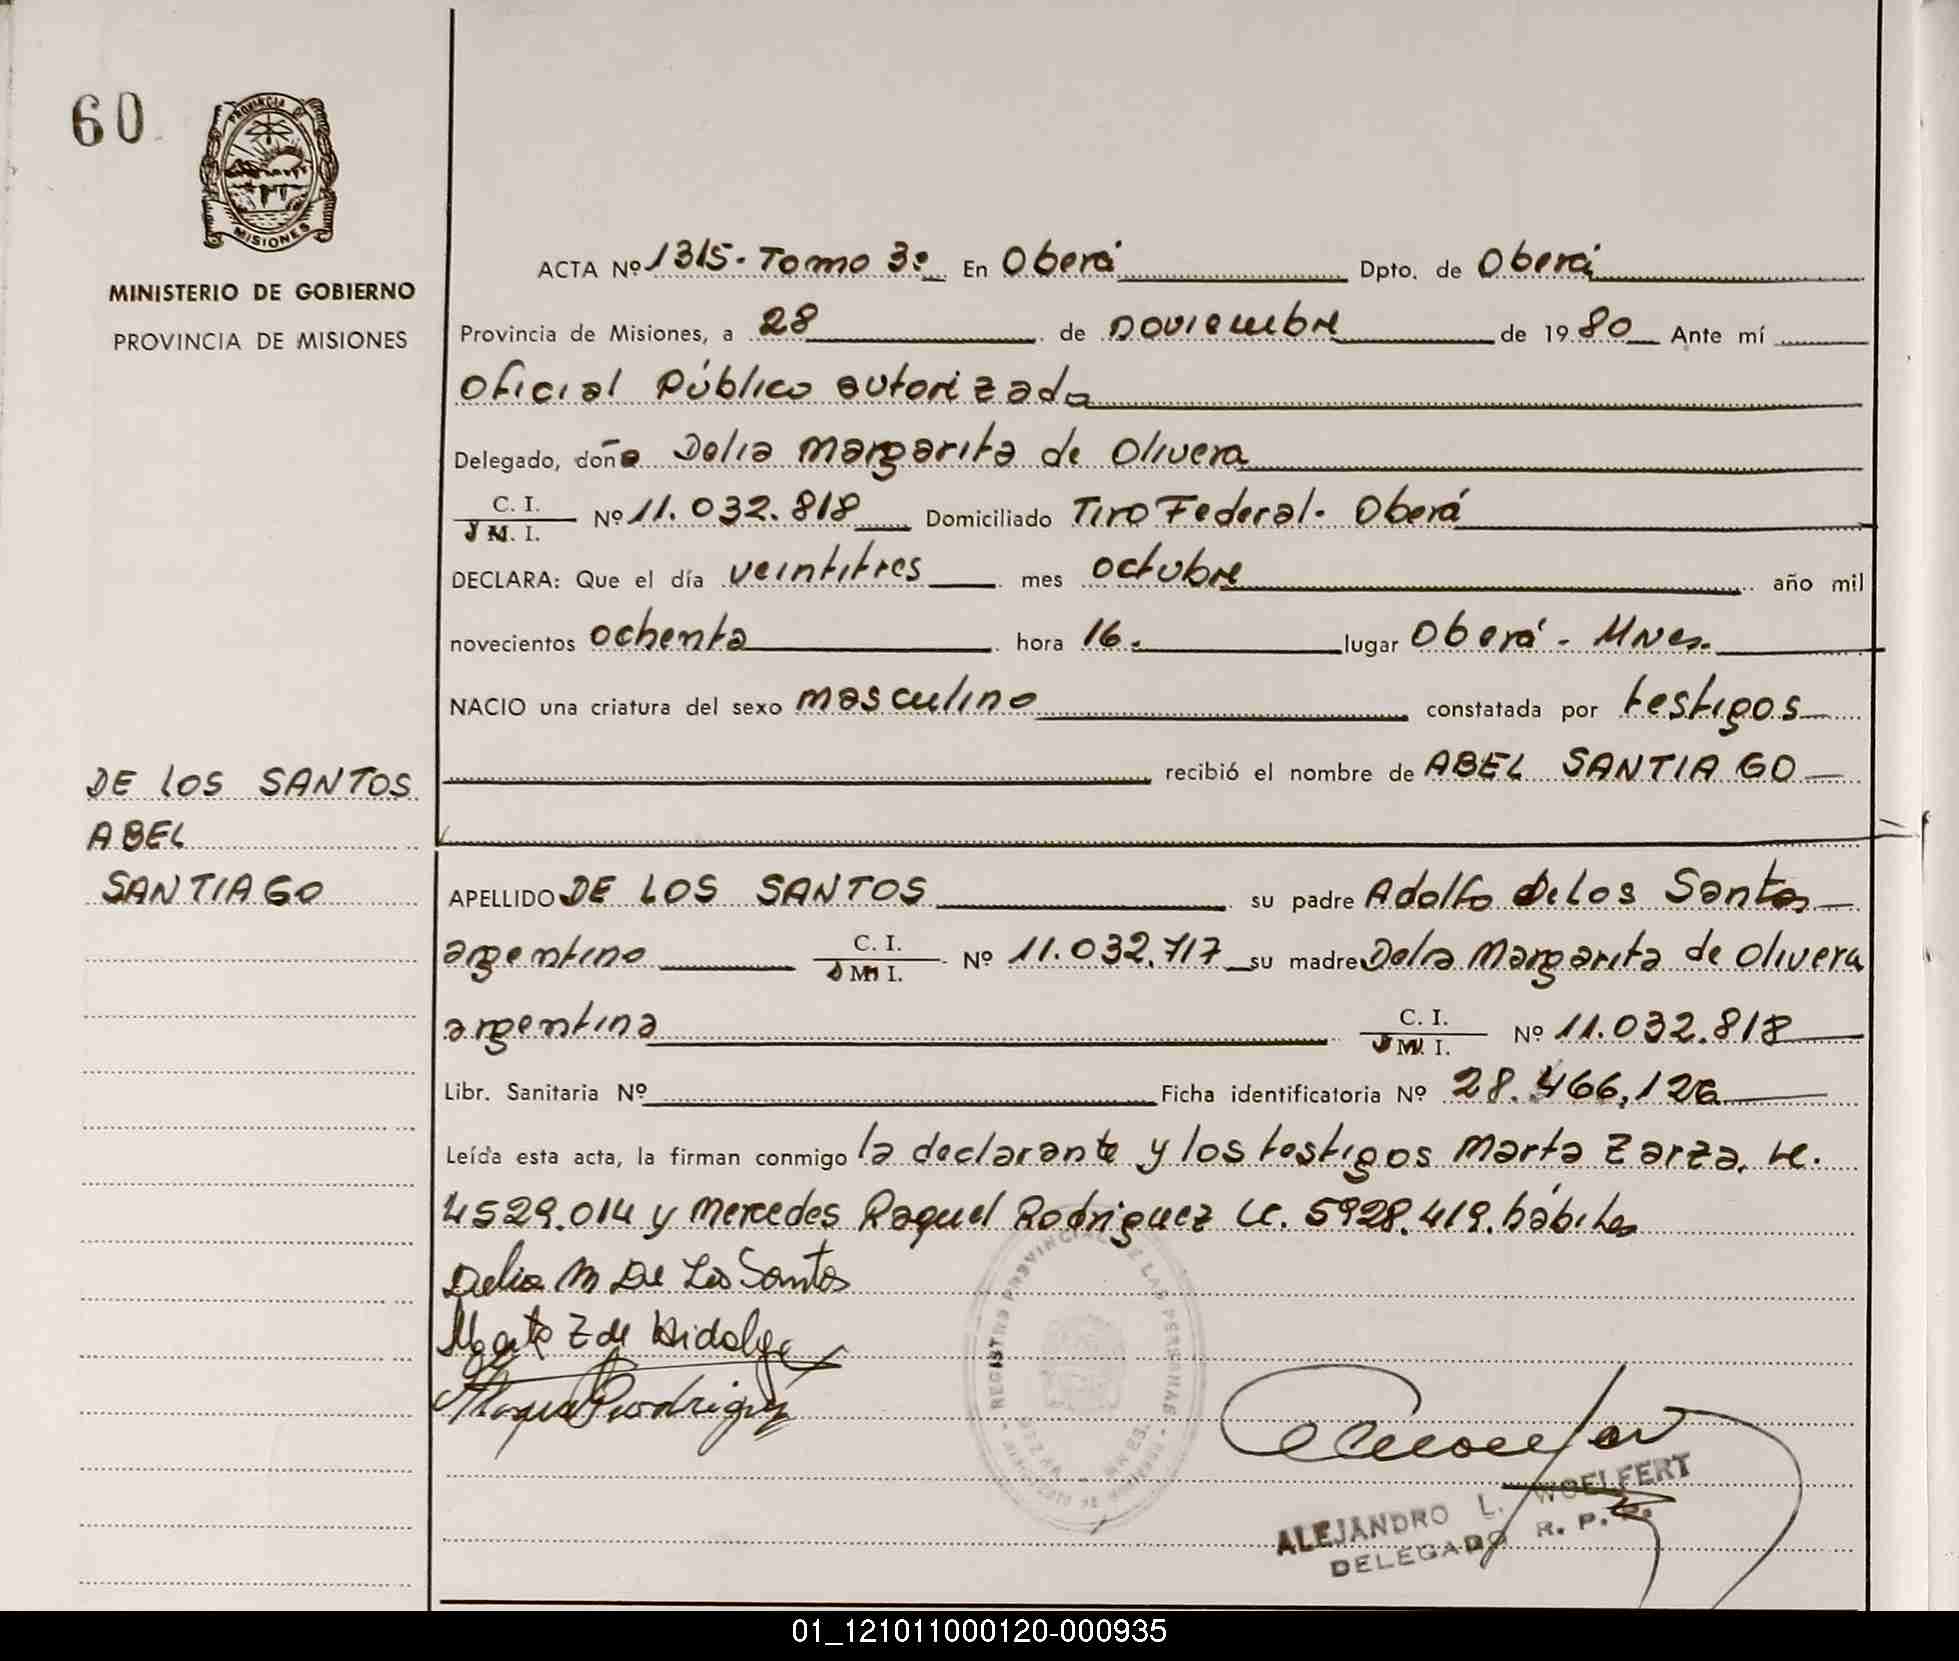 60
PROVINCIA DE
MISIONES
MINISTERIO DE GOBIERNO
PROVINCIA DE MISIONES
ACTA Nº 1315. Tomo 3º En Oberá Dpto. de Oberá
Provincia de Misiones, a 28 de noviembre de 1980 Ante mí
Oficial Público autorizado
Delegado, doña Delia Margarita de Olivera
C. I.
D M. I. Nº 11.032.818 Domiciliado Tiro Federal. Oberá
DECLARA: Que el día veintitres mes octubre año mil
novecientos ochenta hora 16. lugar Oberá - Mnes.
NACIO una criatura del sexo masculino constatada por testigos
recibió el nombre de ABEL SANTIAGO
DE LOS SANTOS
ABEL
SANTIAGO
APELLIDO DE LOS SANTOS su padre Adolfo De los Santos
argentino C. I.
D M. I. Nº 11.032.717 su madre Delia Margarita de Olivera
argentina C. I.
D M. I. Nº 11.032.818
Libr. Sanitaria Nº Ficha identificatoria Nº 28.466.126
Leída esta acta, la firman conmigo la declarante y los testigos Marta Zarza. LC.
4529.014 y Mercedes Raquel Rodriguez LC. 5928.419. hábiles
Delia M De Los Santos
Marta Z de Hidalgo
Raquel Rodriguez
REGISTRO PROVINCIAL DE LAS PERSONAS
ALEJANDRO L. WOELFERT
DELEGADO R. P. P.
01_121011000120-000935